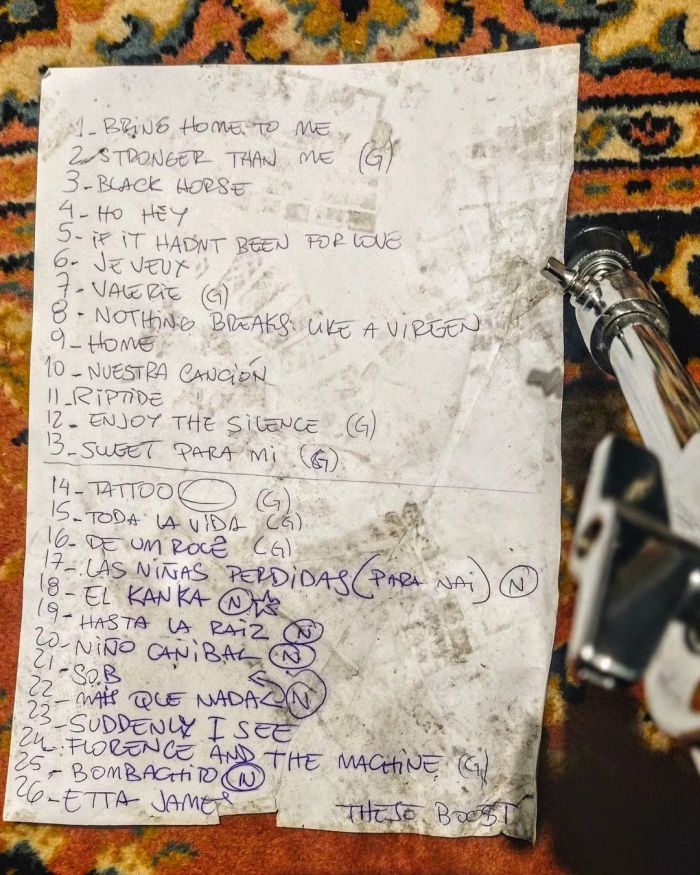 1- BRING HOME TO ME
2- STRONGER THAN ME (G)
3- BLACK HORSE
4- HO HEY
5- IF IT HADNT BEEN FOR LOVE
6- JE VEUX
7- VALERIE (G)
8- NOTHING BREAKS LIKE A VIRGEN
9- HOME
10- NUESTRA CANCIÓN
11- RIPTIDE
12- ENJOY THE SILENCE (G)
13- SWEET PARA MI (G)
14- TATTOO (G)
15- TODA LA VIDA (G)
16- DE UM ROLÊ (G)
17- LAS NIÑAS PERDIDAS (PARA NAI) (N)
18- EL KANKA (N)
19- HASTA LA RAIZ (N)
20- NIÑO CANIBAL (N)
21- SOB
22- MAIS QUE NADA (N)
23- SUDDENLY I SEE
24- FLORENCE AND THE MACHINE (G)
25- BOMBACHITO (N)
26- ETTA JAMES
BOOST